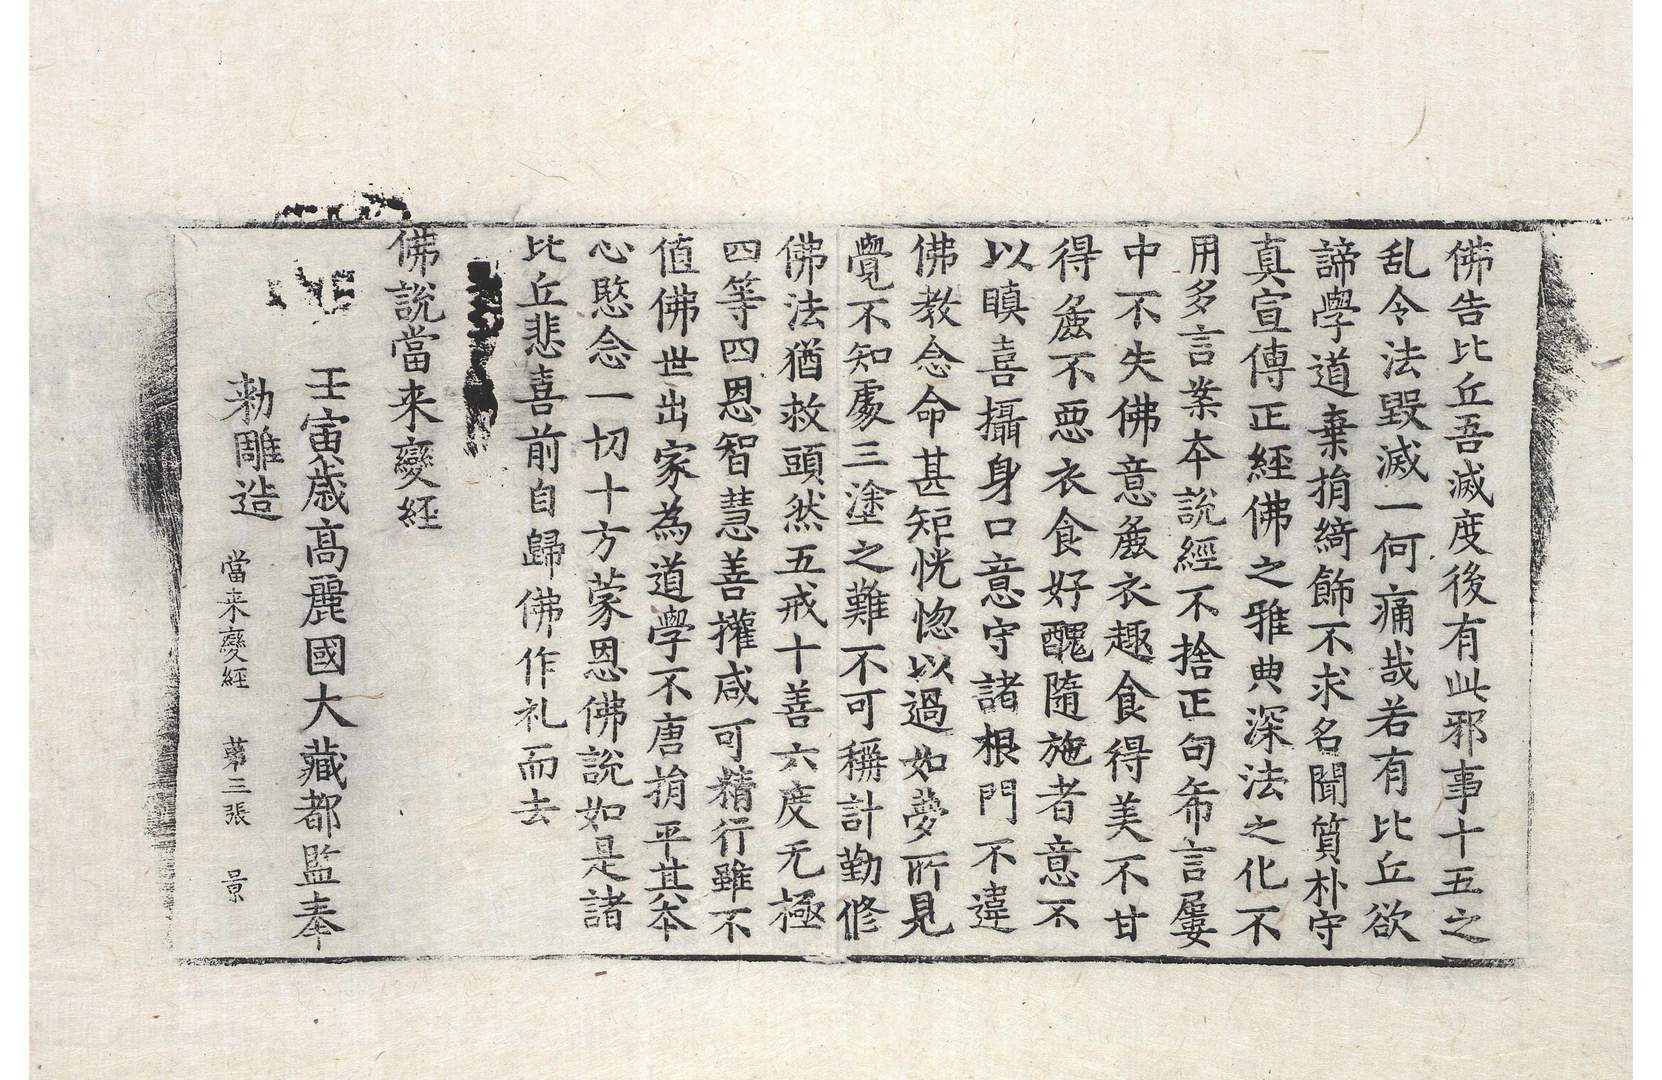 佛告比丘吾滅度後有此邪事十五之
乱令法毀滅一何痛哉若有比丘欲
諦學道棄捐綺飾不求名聞質朴守
真宣傳正經佛之雅典深法之化不
用多言案夲說經不捨正句希言屢
中不失佛意麁衣趣食得美不甘
得麁不惡衣食好醜隨施者意不
以瞋喜攝身口意守諸根門不違
佛教念命甚矩恍惚以過如夢所見
覺不知處三塗之難不可稱計勤修
佛法猶救頭然五戒十善六度无極
四等四恩智慧善權咸可精行雖不
值佛世出家為道學不唐捐平其夲
心愍念一切十方蒙恩佛說如是諸
比丘悲喜前自歸佛作礼而去
佛說當来變經
壬寅歲高麗國大藏都監奉
勅雕造
當来變經 苐三張 景